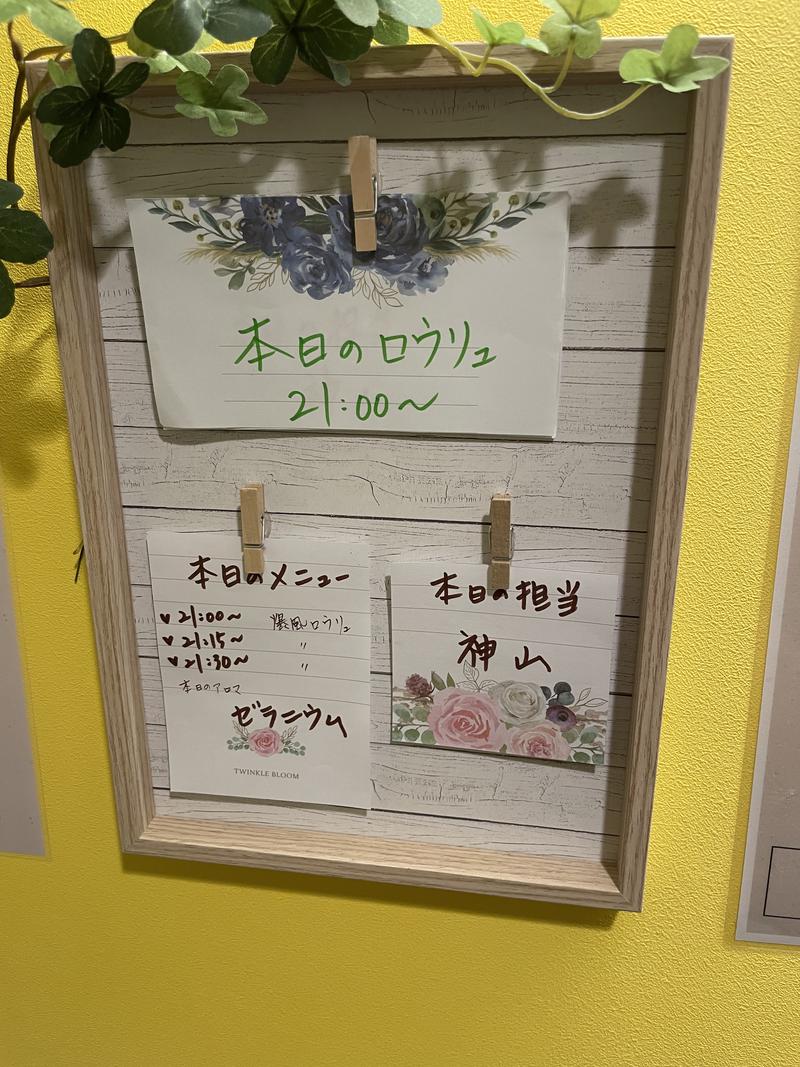 本日のロウリュ
21:00～
本日のメニュー
♥ 21:00～ 爆風ロウリュ
♥ 21:15～ 〃
♥ 21:30～ 〃
本日のアロマ
ゼラニウム
TWINKLE BLOOM
本日の担当
神山